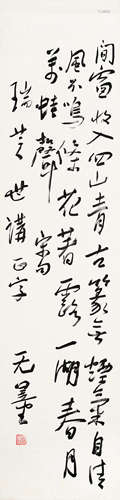 閒窗收入四山青古篆無煙氣自清
風不鳴條花著露一湖春月
萬蛙聲 宋句
瑞芝世講正字
无量